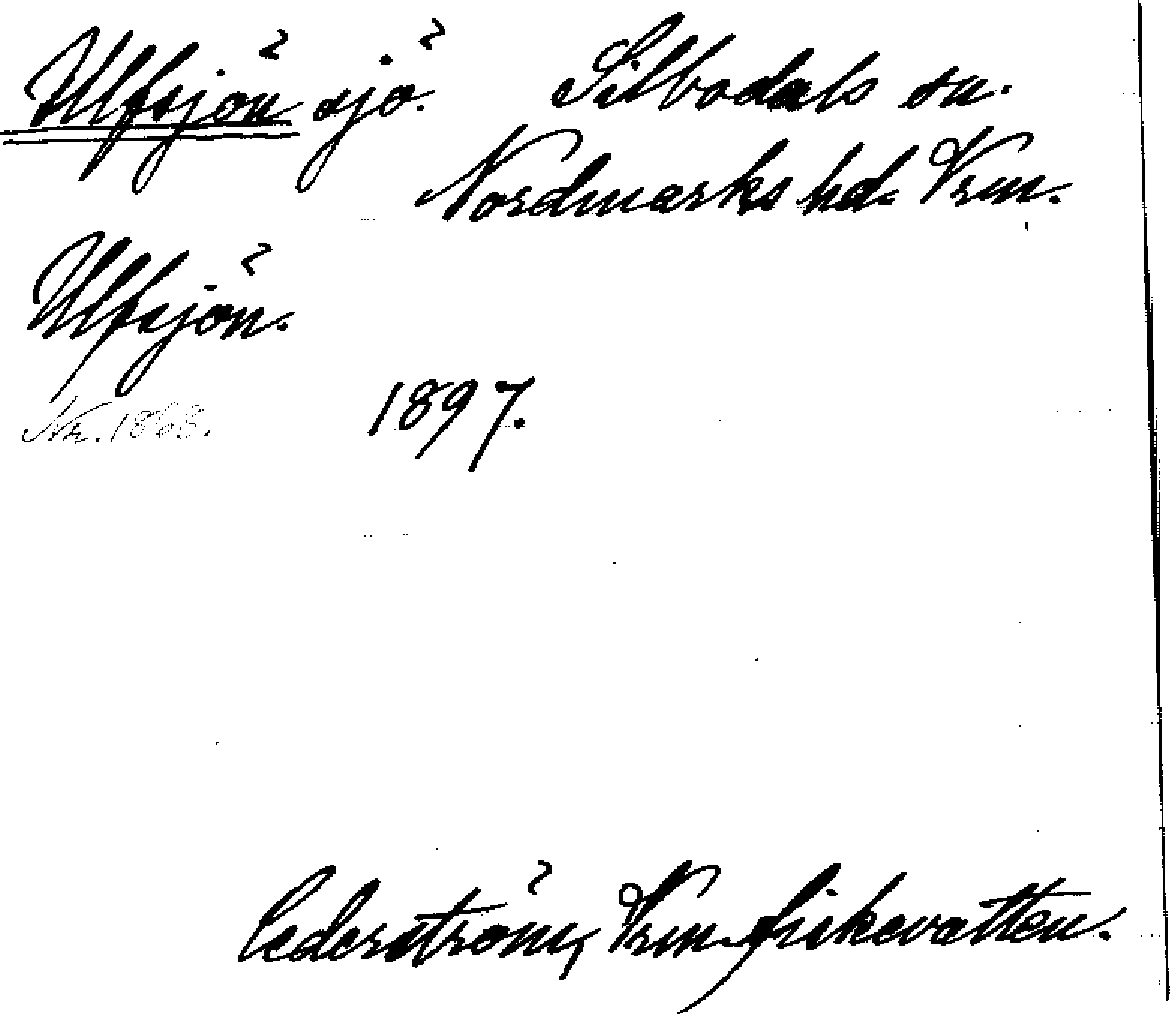 Ulfsjön sjö. Silbodals sn.
Nordmarks hd. Vrm.
Ulfsjön.
Nr. 1868. 1897.
Cederström, Vrm. fiskevatten.